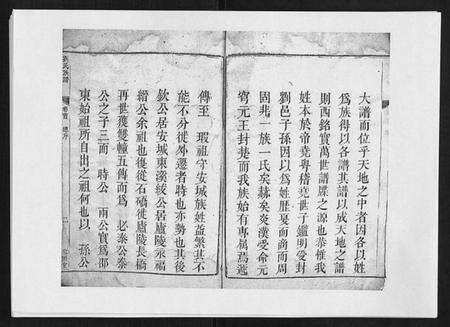 大譜而位乎天地之中者因各以姓
爲族得以各譜其譜以成天地之譜
則西銘實萬世譜牒之源也恭惟我
姓本於帝堯粤稽堯世子鑑明受封
劉邑子孫因以爲姓歷夏商而周
固非一族一氏矣赫矣炎漢受命元
王封楚而我族始有專屬焉
傳至 瑕祖守安城族姓益繁其不
能不分徙外遷者時也亦勢也其後
欽公居安城東溪綏公居廬陵永福
縉公余祖也復從石磵徙廬陵長橋
再世獲雙幢五傳而爲 必泰公泰
公之子三而 時公 雨公實爲邵
東始祖所自出之祖何也以 孫公
劉氏族譜